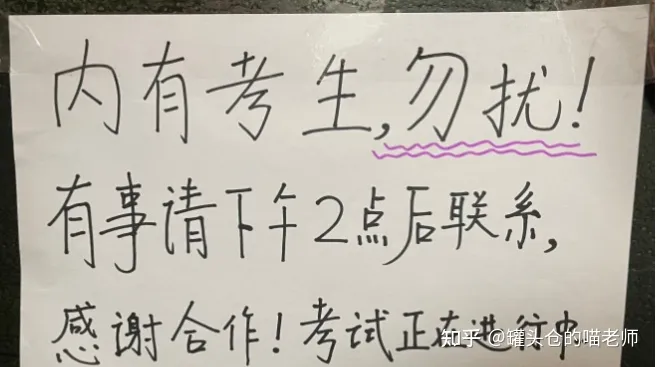 内有考生,勿扰!
有事请下午2点后联系,
感谢合作!考试正在进行中
知乎 @罐头仓的喵老师